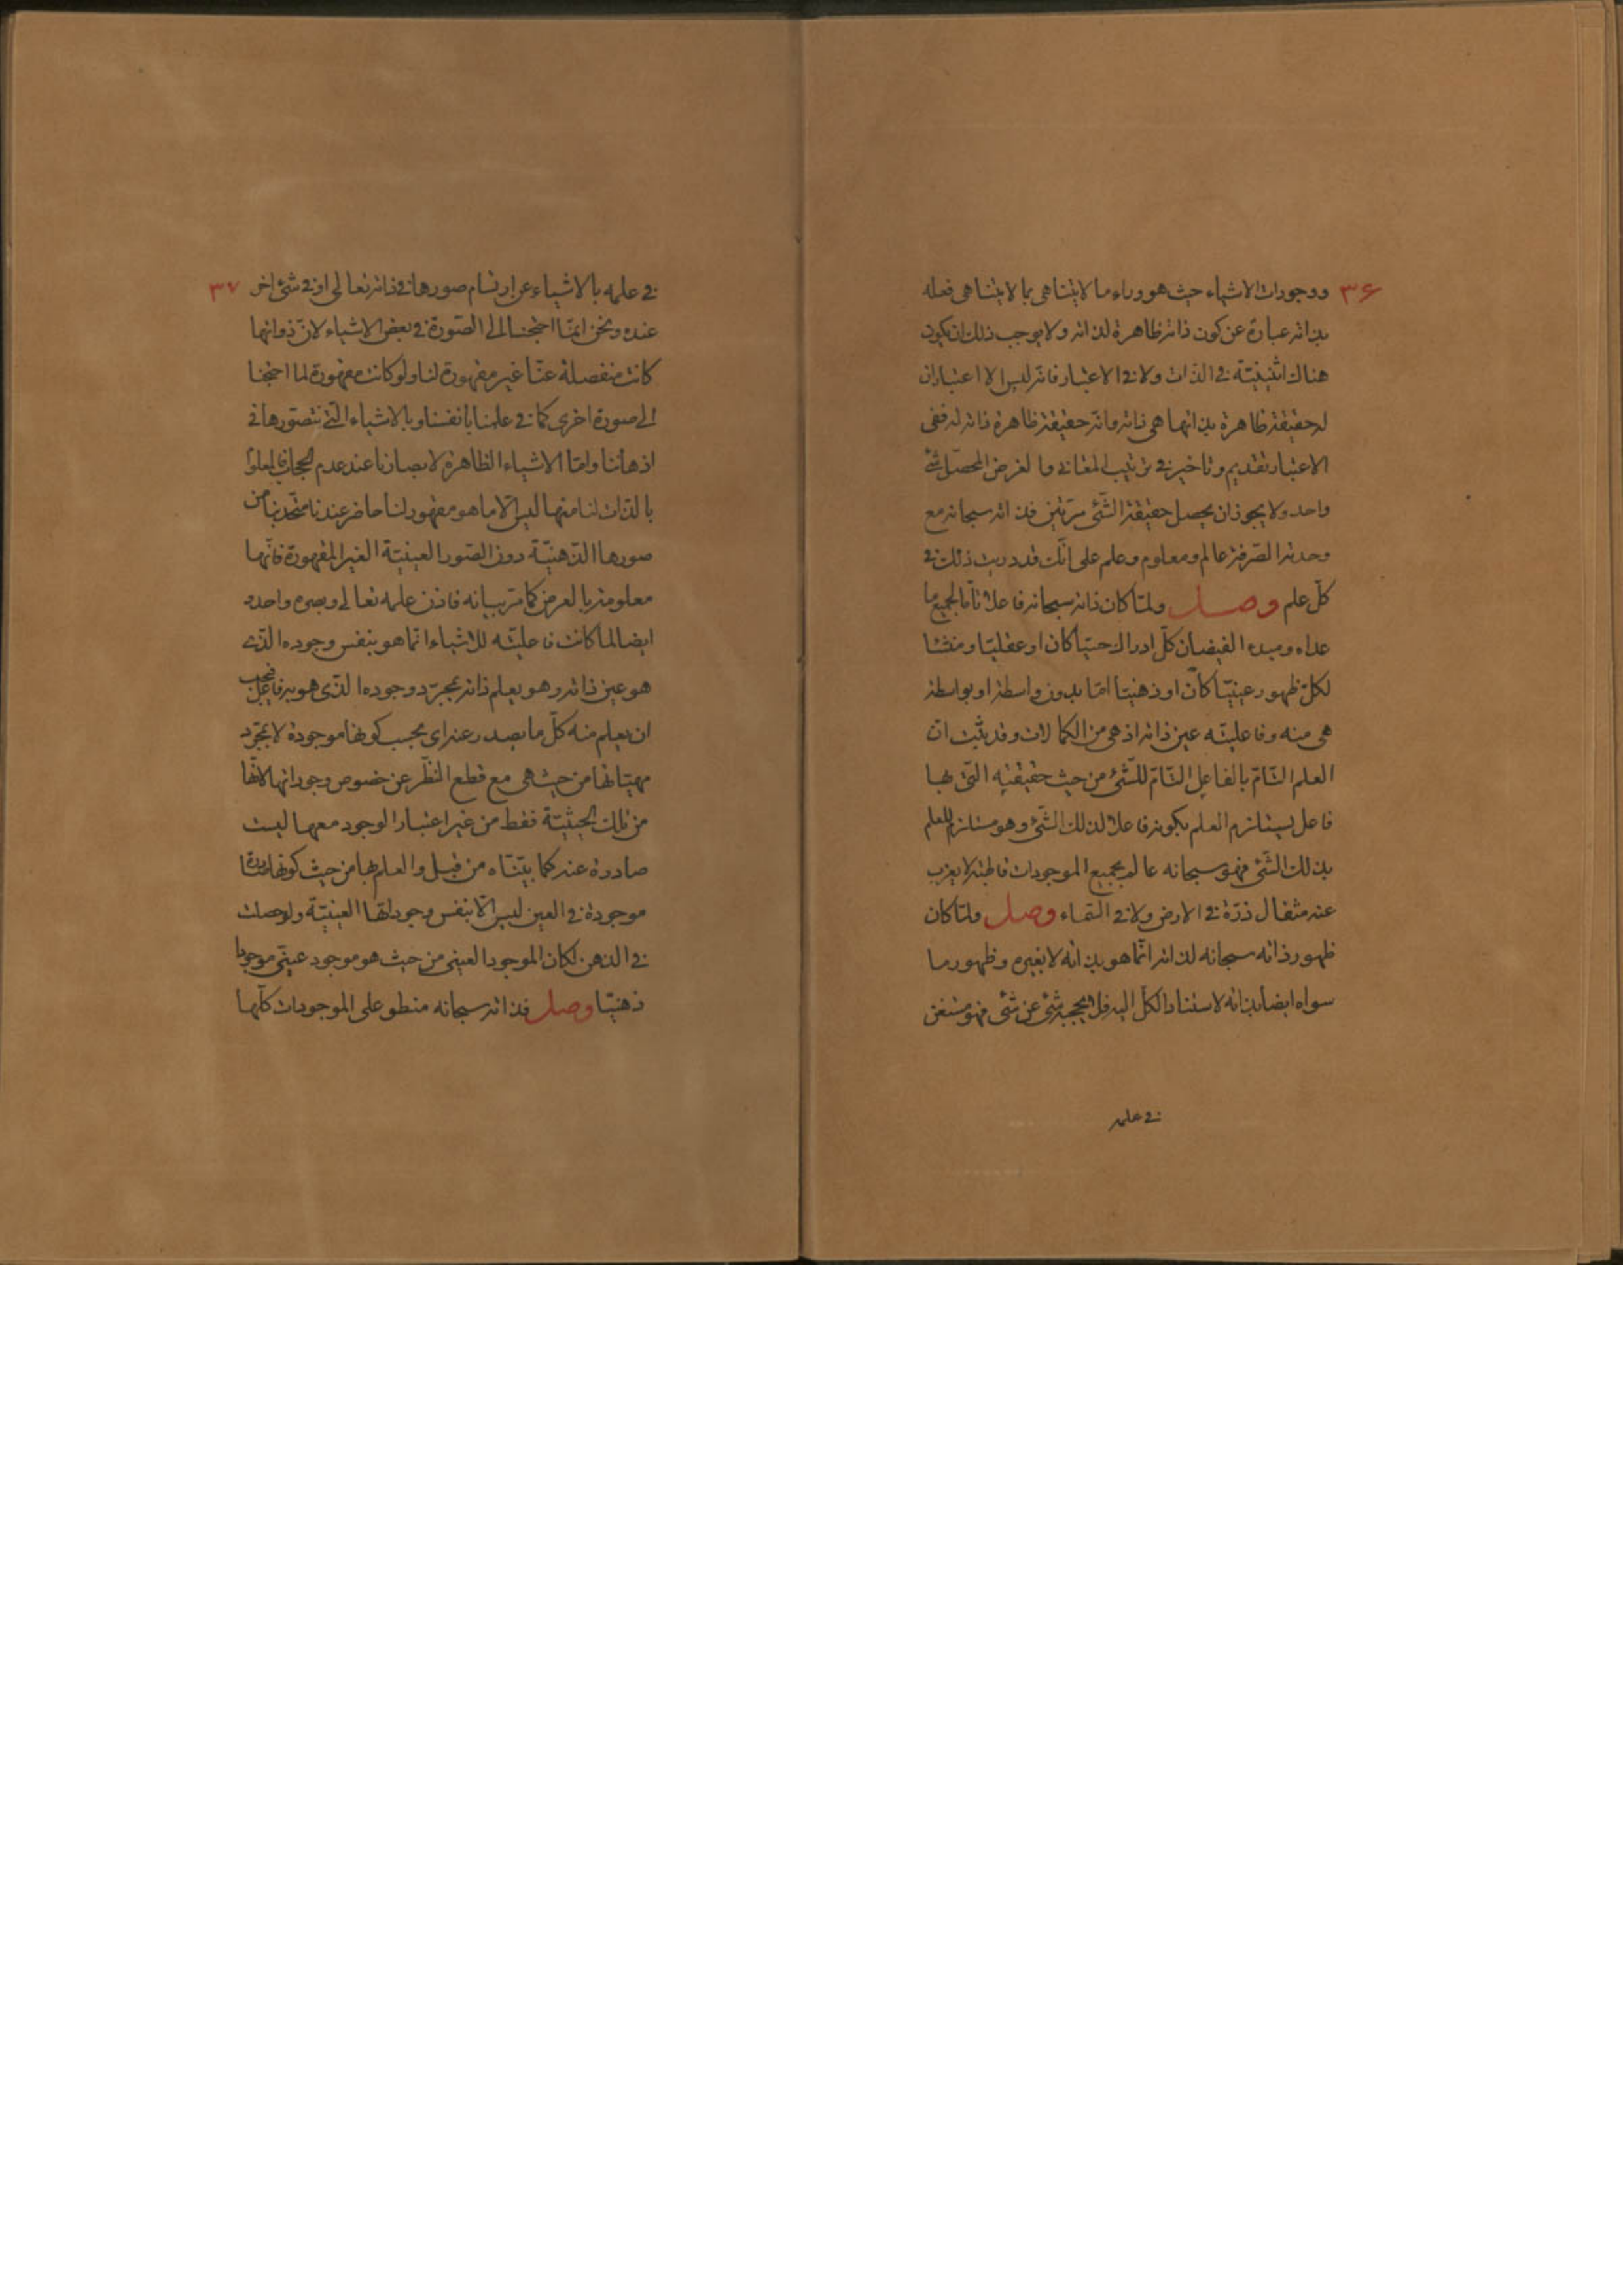 ٣۶
ووجودات الاشياء حيث هو وراء ما لا يتناهى بما لا يتناهى فعله
بذاته عبارة عن كون ذاته ظاهرة لذاته ولا يوجب ذلك ان يكون
هناك اثنينيّة فى الذات ولا فى الاعتبار فانه ليس الا اعتبار ان
له حقيقة ظاهرة بذاتها هى ذاته وانّه حقيقة ظاهرة ذاته له ففى
الاعتبار تقديم وتاخير فى ترتيب المعانى والغرض المحصّل شئ
واحد ولا يجوز ان يحصل حقيقة الشّئ مرّتين فذاته سبحانه مع
وحدته الصّرفة عالم ومعلوم وعلم على انّك قد دريت ذلك فى
كلّ علم وصل ولمّا كان ذاته سبحانه فاعلا تامّا لجميع ما
عداه ومبدء الفيضان كلّ ادراك حسّيّا كان او عقليّا ومنشا
لكلّ ظهور عينيّا كان او ذهنيّا امّا بدون واسطة او بواسطة
هى منه وفاعليّته عين ذاته اذ هى من الكمالات وقد ثبت انّ
العلم التّامّ بالفاعل التّامّ للشّئ من حيث حقيقته الّتى بها
فاعل يستلزم العلم بكونه فاعلا لذلك الشّئ وهو مستلزم للعلم
بذلك الشّئ فهو سبحانه عالم بجميع الموجودات قاطبة لا يعزب
عنه مثقال ذرّة فى الارض ولا فى السّماء وصل ولمّا كان
ظهور ذاته سبحانه لذاته انّما هو بذاته لا بغيره وظهور ما
سواه ايضا بذاته لاستناد الكلّ اليه فلا يحجبه شئ عن شئ فهو مستغن
فى علمه
٣٧
فى علمه بالاشياء عن ارتسام صورها فى ذاته تعالى او فى شئ اخر
عنده ونحن انّما احتجنا الى الصّورة فى بعض الاشياء لانّ ذواتها
كانت منفصلة عنّا غير مقهورة لنا ولو كانت مقهورة لما احتجنا
الى صورة اخرى كما فى علمنا بانفسنا وبالاشياء الّتى نتصوّرها فى
اذهاننا وامّا الاشياء الظاهرة لابصارنا عند عدم الحجاب فالمعلوم
بالذّات لنا منها ليس الّا ما هو مقهور لنا حاضر عندنا متّحد بنا من
صورها الذّهنيّة دون الصّور العينيّة الغير المقهورة فانّها
معلومة بالعرض كما مرّ بيانه فاذن علمه تعالى وبصره واحد و
ايضا لما كانت فاعليّته للاشياء انّما هو بنفس وجوده الّذى
هو عين ذاته وهو يعلم ذاته بمجرّد وجوده الّذى هو به فاعل فيجب
ان يعلم منه كلّ ما يصدر عنه اى بحسب كونها موجودة لا بمجرّد
مهيّاتها من حيث هى مع قطع النّظر عن خصوص وجوداتها لانّها
من تلك الحيثيّة فقط من غير اعتبار الوجود معها ليست
صادرة عنه كما بيّنّاه من قبل والعلم بها من حيث كونها صادرة
موجودة فى العين ليس الّا بنفس وجوداتها العينيّة ولو حصلت
فى الذهن لكان الموجود العينى من حيث هو موجود عينى موجودا
ذهنيّا وصل فذاته سبحانه منطو على الموجودات كلّها